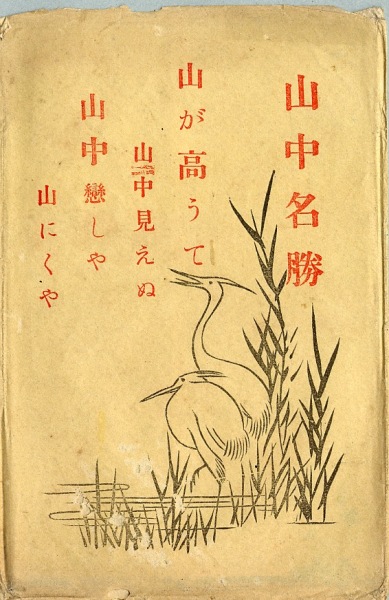 山中名勝
山が高うて
山中見えぬ
山中戀しや
山にくや